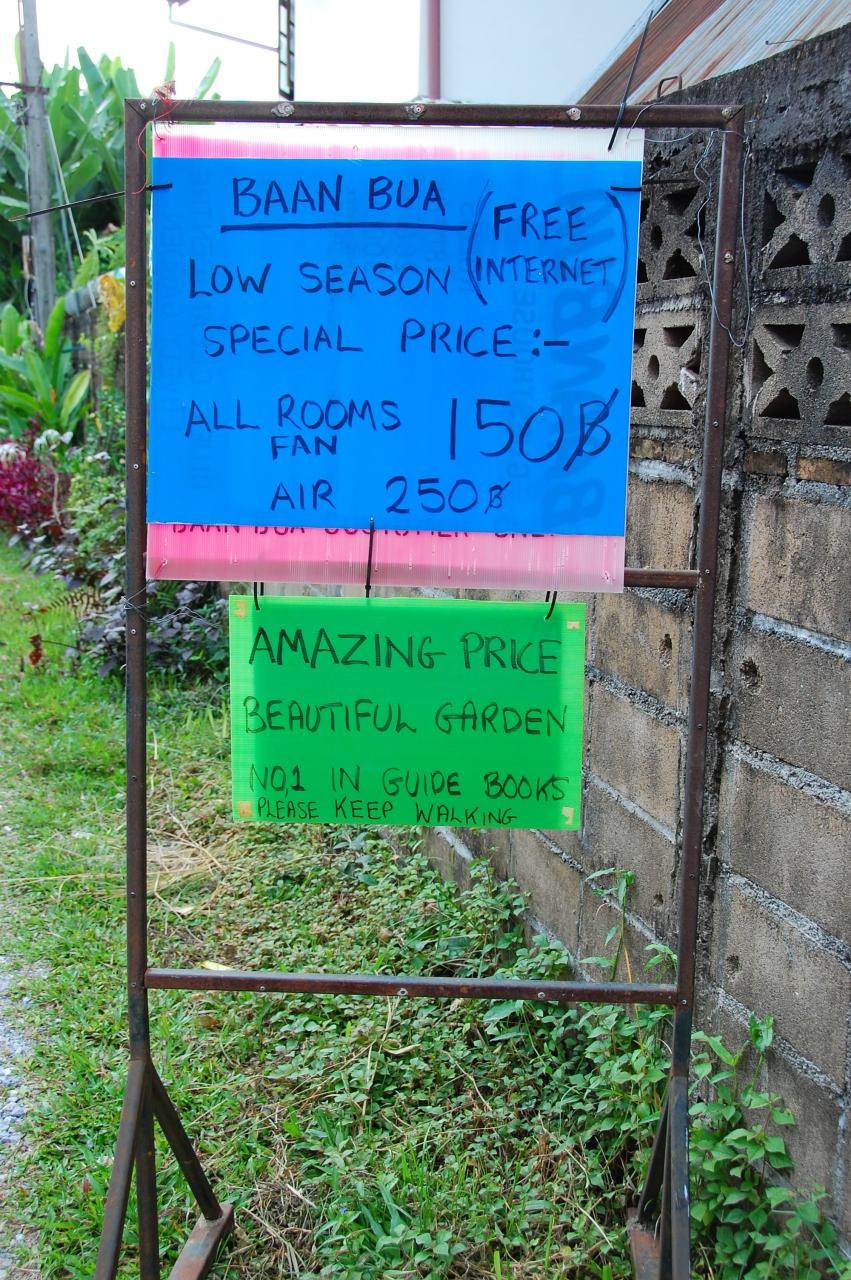 BAAN BUA
(FREE INTERNET)
LOW SEASON
SPECIAL PRICE:-
ALL ROOMS
FAN 150฿
AIR 250฿
BAAN BUA CUSTOMER ONLY
AMAZING PRICE
BEAUTIFUL GARDEN
NO,1 IN GUIDE BOOKS
PLEASE KEEP WALKING